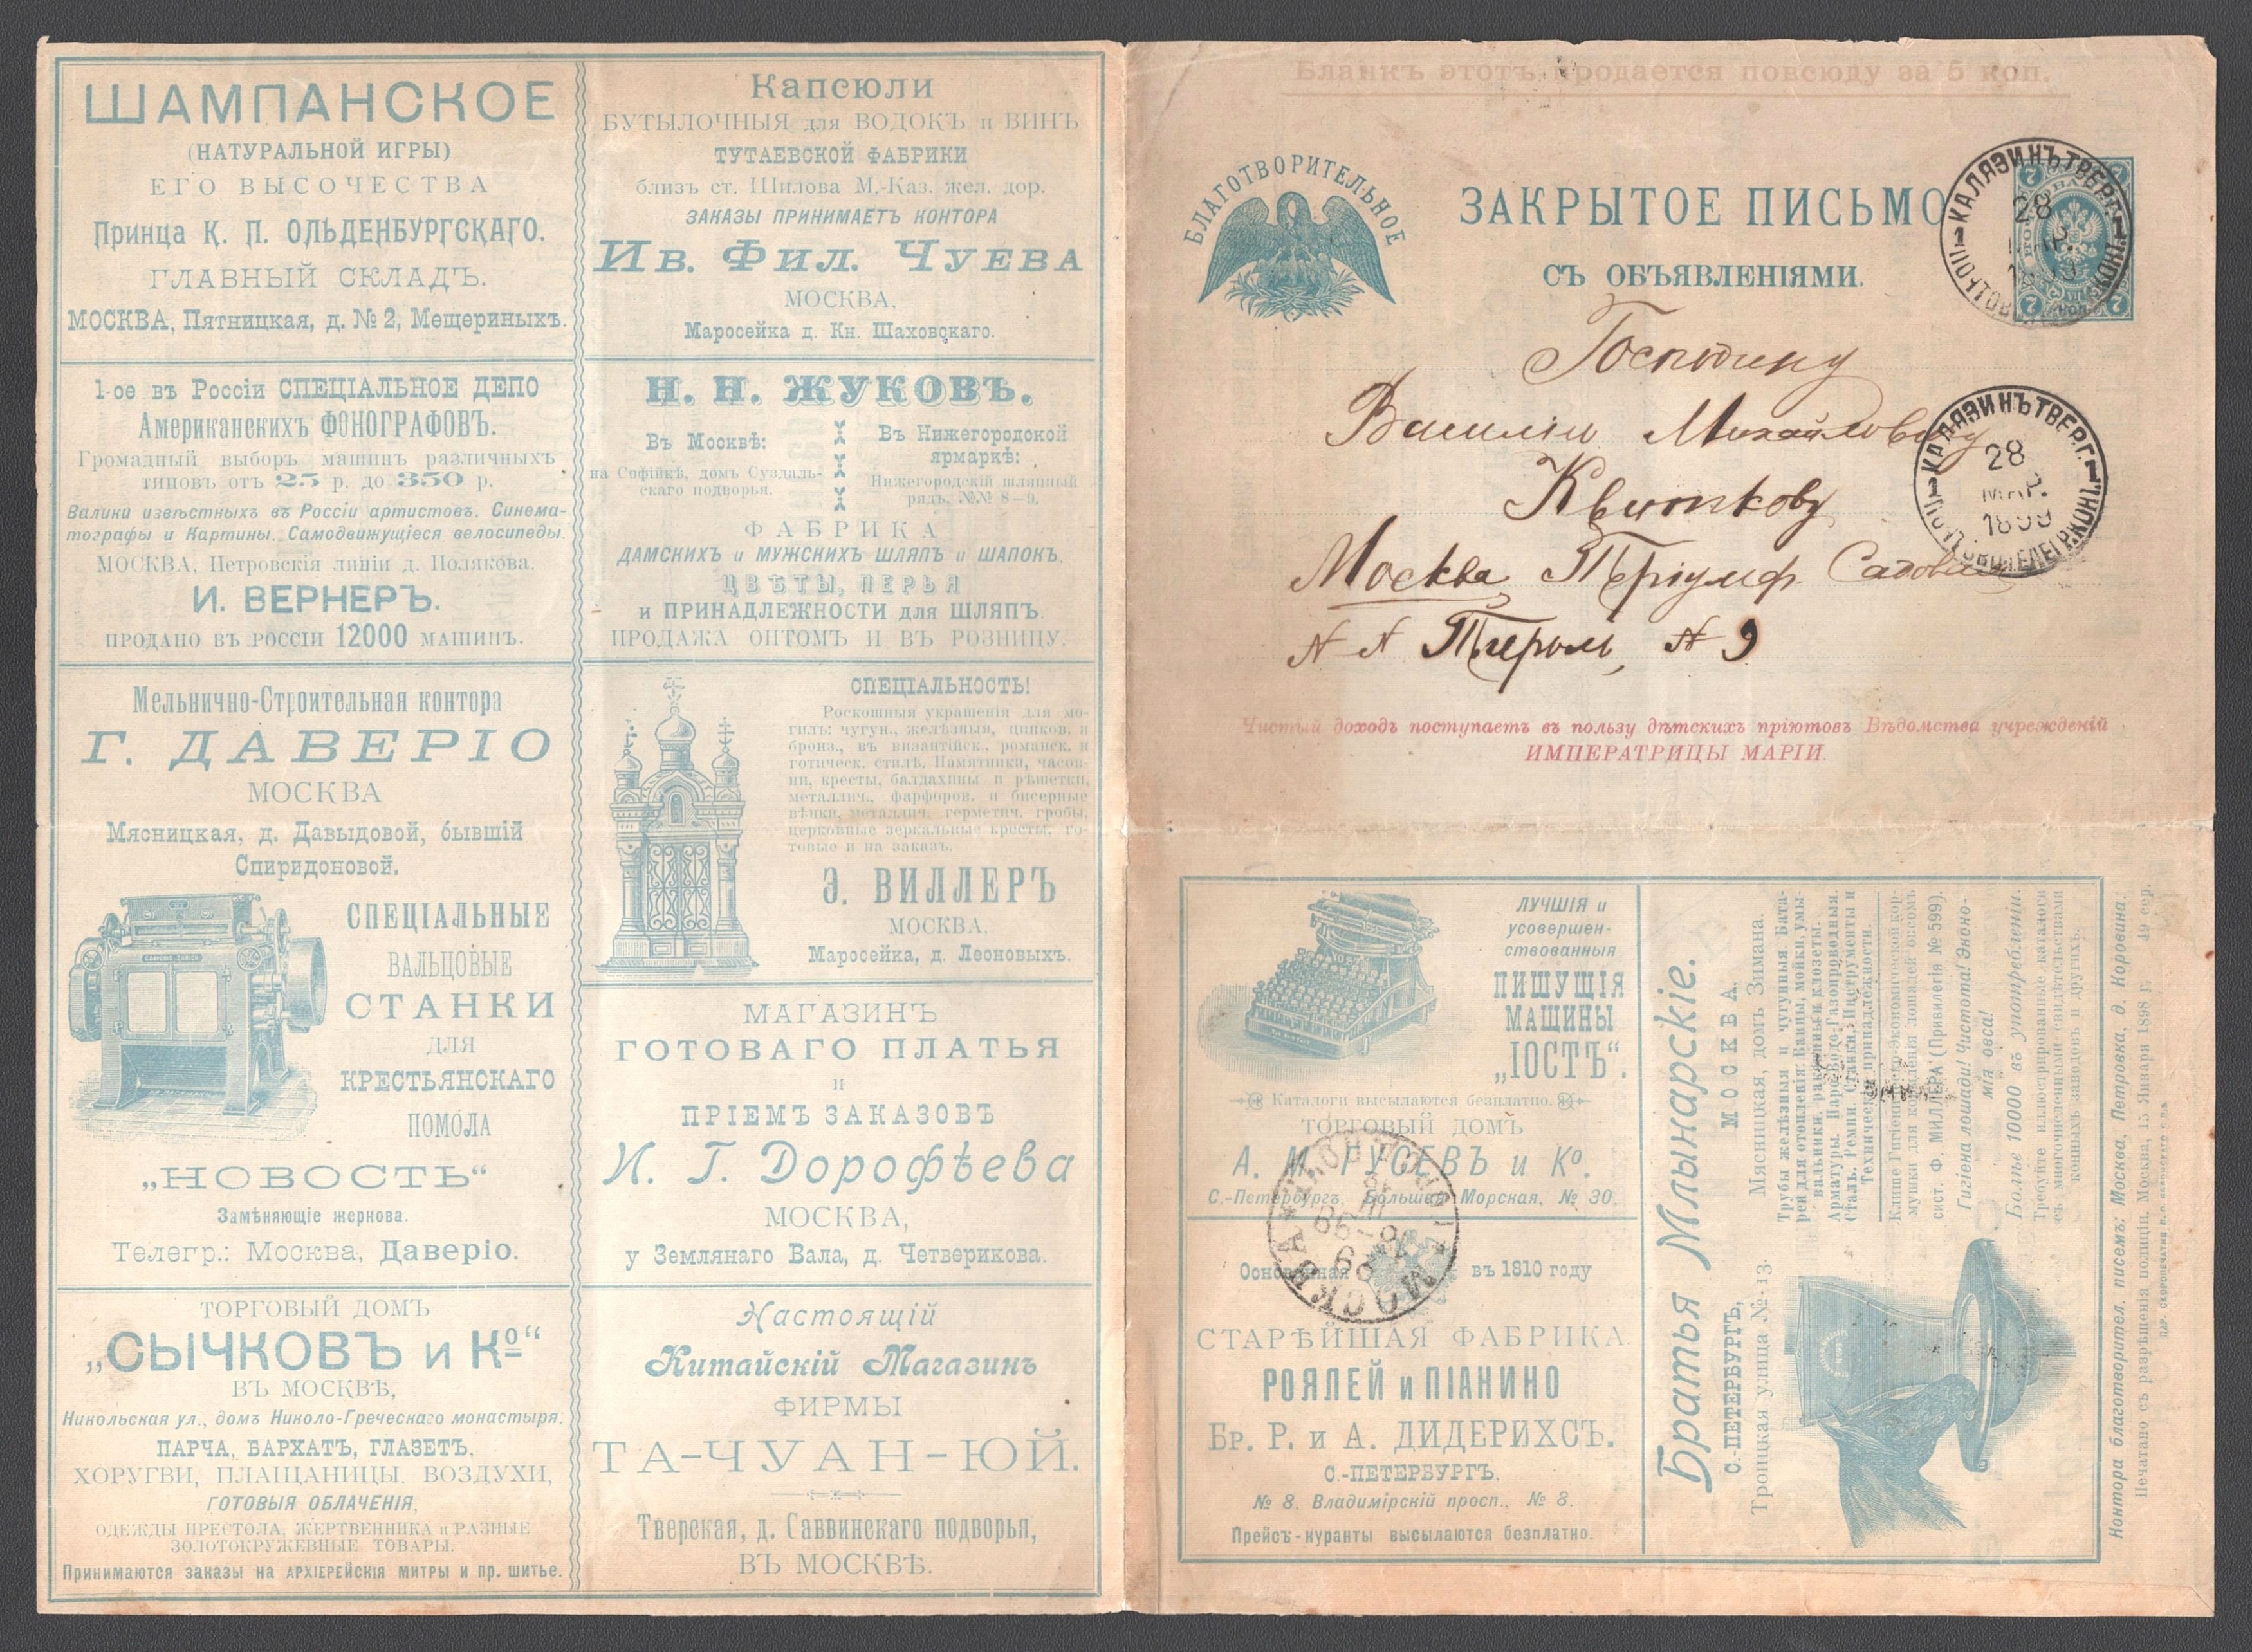 ШАМПАНСКОЕ
(НАТУРАЛЬНОЙ ИГРЫ)
ЕГО ВЫСОЧЕСТВА
Принца К. П. ОЛЬДЕНБУРГСКАГО.
ГЛАВНЫЙ СКЛАДЪ.
МОСКВА, Пятницкая, д. № 2, Мещериныхъ.
1-ое въ Россіи СПЕЦІАЛЬНОЕ ДЕПО
Американскихъ ФОНОГРАФОВЪ.
Громадный выборъ машинъ различныхъ
типовъ отъ 25 р. до 350 р.
Валики извѣстныхъ въ Россіи артистовъ. Синема-
тографы и Картины. Самодвижущіеся велосипеды.
МОСКВА, Петровскія линіи д. Полякова.
И. ВЕРНЕРЪ.
ПРОДАНО ВЪ РОССІИ 12000 МАШИНЪ.
Мельнично-Строительная контора
Г. ДАВЕРІО
МОСКВА
Мясницкая, д. Давыдовой, бывшій
Спиридоновой.
СПЕЦІАЛЬНЫЕ
ВАЛЬЦОВЫЕ
СТАНКИ
ДЛЯ
КРЕСТЬЯНСКАГО
ПОМОЛА
„НОВОСТЬ“
Замѣняющіе жернова.
Телегр.: Москва, Даверіо.
ТОРГОВЫЙ ДОМЪ
„СЫЧКОВЪ и Ко“
ВЪ МОСКВѢ,
Никольская ул., домъ Николо-Греческаго монастыря.
ПАРЧА, БАРХАТЪ, ГЛАЗЕТЪ,
ХОРУГВИ, ПЛАЩАНИЦЫ, ВОЗДУХИ,
ГОТОВЫЯ ОБЛАЧЕНІЯ,
ОДЕЖДЫ ПРЕСТОЛА, ЖЕРТВЕННИКА и РАЗНЫЕ
ЗОЛОТОКРУЖЕВНЫЕ ТОВАРЫ.
Принимаются заказы на АРХІЕРЕЙСКІЯ МИТРЫ и пр. шитье.
Капсюли
БУТЫЛОЧНЫЯ для ВОДОКЪ и ВИНЪ
ТУТАЕВСКОЙ ФАБРИКИ
близъ ст. Шилова М.-Каз. жел. дор.
ЗАКАЗЫ ПРИНИМАЕТЪ КОНТОРА
Ив. Фил. Чуева
МОСКВА,
Маросейка д. Кн. Шаховскаго.
Н. Н. ЖУКОВЪ.
Въ Москвѣ:
на Софійкѣ, домъ Суздаль-
скаго подворья.
Въ Нижегородской
ярмаркѣ:
Нижегородскій шляпный
рядъ, №№ 8–9.
ФАБРИКА
ДАМСКИХЪ и МУЖСКИХЪ ШЛЯПЪ и ШАПОКЪ,
ЦВѢТЫ, ПЕРЬЯ
и ПРИНАДЛЕЖНОСТИ для ШЛЯПЪ.
ПРОДАЖА ОПТОМЪ И ВЪ РОЗНИЦУ.
СПЕЦІАЛЬНОСТЬ!
Роскошныя украшенія для мо-
гилъ: чугун., желѣзныя, цинков. и
бронз., въ византійск., романск. и
готическ. стилѣ. Памятники, часов-
ни, кресты, балдахины и рѣшетки,
металлич., фарфоров. и бисерные
вѣнки, металлич. герметич. гробы,
церковные зеркальные кресты, го-
товые и на заказъ.
Э. ВИЛЛЕРЪ
МОСКВА,
Маросейка, д. Леоновыхъ.
МАГАЗИНЪ
ГОТОВАГО ПЛАТЬЯ
И
ПРІЕМЪ ЗАКАЗОВЪ
И. Г. Дорофѣева
МОСКВА,
у Землянаго Вала, д. Четверикова.
Настоящій
Китайскій Магазинъ
ФИРМЫ
ТА-ЧУАН-ЮЙ.
Тверская, д. Саввинскаго подворья,
ВЪ МОСКВѢ.
Бланкъ этотъ продается повсюду за 5 коп.
БЛАГОТВОРИТЕЛЬНОЕ
ЗАКРЫТОЕ ПИСЬМО
СЪ ОБЪЯВЛЕНІЯМИ.
КАЛЯЗИНЪ ТВЕРГ.
28
Господину
Василію Михайловичу
Москва
№ 9
КАЛЯЗИНЪ ТВЕРГ.
28
МАР.
1899
Чистый доходъ поступаетъ въ пользу дѣтскихъ пріютовъ Вѣдомства учрежденій
ИМПЕРАТРИЦЫ МАРІИ.
ЛУЧШІЯ и
усовершен-
ствованныя
ПИШУЩІЯ
МАШИНЫ
„ІОСТЪ“.
Каталоги высылаются безплатно.
ТОРГОВЫЙ ДОМЪ
А. М. ГУСЕВЪ и Ко.
С.-Петербургъ, Большая Морская, № 30.
МОСКВА
Основанная въ 1810 году
СТАРѢЙШАЯ ФАБРИКА
РОЯЛЕЙ и ПІАНИНО
Бр. Р. и А. ДИДЕРИХСЪ.
С.-ПЕТЕРБУРГЪ,
№ 8. Владимірскій просп., № 8.
Прейсъ-куранты высылаются безплатно.
Братья Млынарскіе.
С.-ПЕТЕРБУРГЪ,
Троицкая улица № 13.
МОСКВА,
Мясницкая, домъ Зимана.
Трубы желѣзныя и чугунныя Бата-
реи для отопленія: Ванны, мойки, умы-
вальники, раковины и клозеты.
Арматуры. Паро-Водо-Газопроводныя.
Сталь. Ремни. Станки. Инструменты и
Техническія принадлежности.
мушки для кормленія лошадей овсомъ
сист. Ф. МИЛЛЕРА (Привилегія № 599).
Гигіена лошади! Чистота! Эконо-
мія овса!
Болѣе 10000 въ употребленіи.
Требуйте иллюстрированные каталоги
съ многочисленными свидѣтельствами
конныхъ заводовъ и другихъ.
Контора благотворител. писемъ: Москва, Петровка, д. Коровина.
Печатано съ разрѣшенія полиціи. Москва, 15 Января 1898 г. 49 сер.